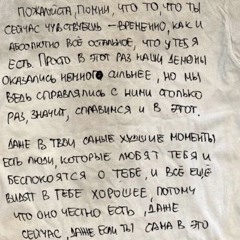 ПОЖАЛУЙСТА, ПОМНИ, ЧТО ТО ЧТО ТЫ
СЕЙЧАС ЧУВСТВУЕШЬ – ВРЕМЕННО, КАК И
АБСОЛЮТНО ВСЁ ОСТАЛЬНОЕ, ЧТО У ТЕБЯ
ЕСТЬ. ПРОСТО В ЭТОТ РАЗ НАШИ ДЕМОНЫ
ОКАЗАЛИСЬ НЕМНОГО СИЛЬНЕЕ, НО МЫ
ВЕДЬ СПРАВЛЯЛИСЬ С НИМИ СТОЛЬКО
РАЗ, ЗНАЧИТ, СПРАВИМСЯ И В ЭТОТ.
ДАЖЕ В ТВОИ САМЫЕ ХУДШИЕ МОМЕНТЫ
ЕСТЬ ЛЮДИ, КОТОРЫЕ ЛЮБЯТ ТЕБЯ И
БЕСПОКОЯТСЯ О ТЕБЕ, И ВСЁ ЕЩЕ
ВИДЯТ В ТЕБЕ ХОРОШЕЕ, ПОТОМУ
ЧТО ОНО ЧЕСТНО ЕСТЬ, ДАЖЕ
СЕЙЧАС, ДАЖЕ ЕСЛИ ТЫ САМА В ЭТО